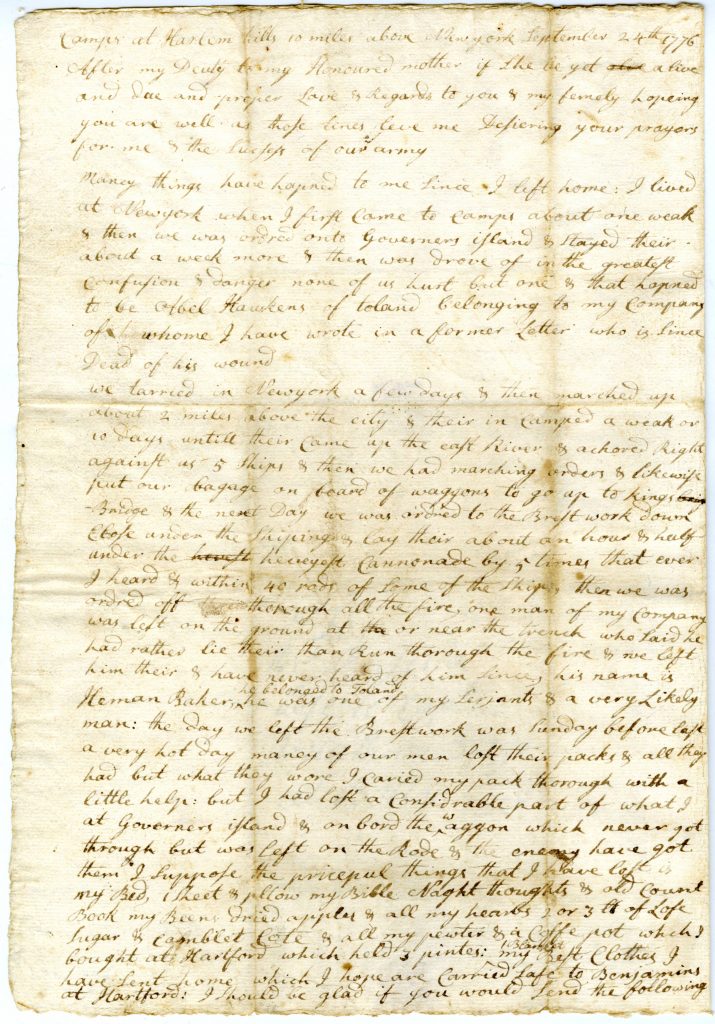 Camps at Harlem hills 10 miles above Newyork September 24th 1776
After my Deuty to my Honoured mother if She be yet alive
and due and proper Love & Regards to you & my femely hopeing
you are well as those lines leve me Desiering your prayors
for me & the Sucsess of our army
Maney things have hapned to me Since I left home: I lived
at Newyork when I first Came to Camps about one weak
& then we was ordred onto Governers island & Stayed their
about a week more & then was drove of in the greatest
Confusion & danger none of us hurt but one & that hapned
to be Abel Hawkens of toland belonging to my Company
of whome I have wrote in a former Letter who is Since
Dead of his wound
we tarried in Newyork a few days & then marched up
about 2 miles above the city & their in Camped a weak or
10 days untill their Came up the east River & achored Right
against us 5 Ships & then we had marching orders & likewise
put our bagage on board of waggons to go up to Kings
Bridge & the next Day we was ordred to the Brest work down
Close under the Shiping & Lay their about an hour & half
under the heveyest Cannonade by 5 times that ever
I heard & within 40 rods of Some of the Ships, then we was
ordred off thorough all the fire, one man of my Company
was left on the ground at or near the trench who Said he
had rather lie their than Run thorough the fire & we left
him their & have never heard of him Since, his name is
Heman Baker, he belonged to Toland, he was one of my Serjants & a very Likely
man: the day we left the Brestwork was Sunday before last
a very hot day maney of our men lost their packs & all they
had but what they wore I caried my pack thorough with a
little help: but I had lost a Considrable part of what I
at Governers island & on bord the waggon which never got
through but was left on the Rode & the enemy have got
them I Suppose the priceful things that I have left is
my Bed, 1 Sheet & pllow my Bible Naght thoughts & old Count
Book my Beens dried apples & all my hearbs 2 or 3 lb of Lofe
Sugar & Camblet Cote & all my pewter & a Coffe pot which I
bought at Hartford which held 3 pintes: my Best Clothes I
have Sent home which I hope are Carried Safe to Benjamins
at Hartford: I Should be glad if you would Send the following